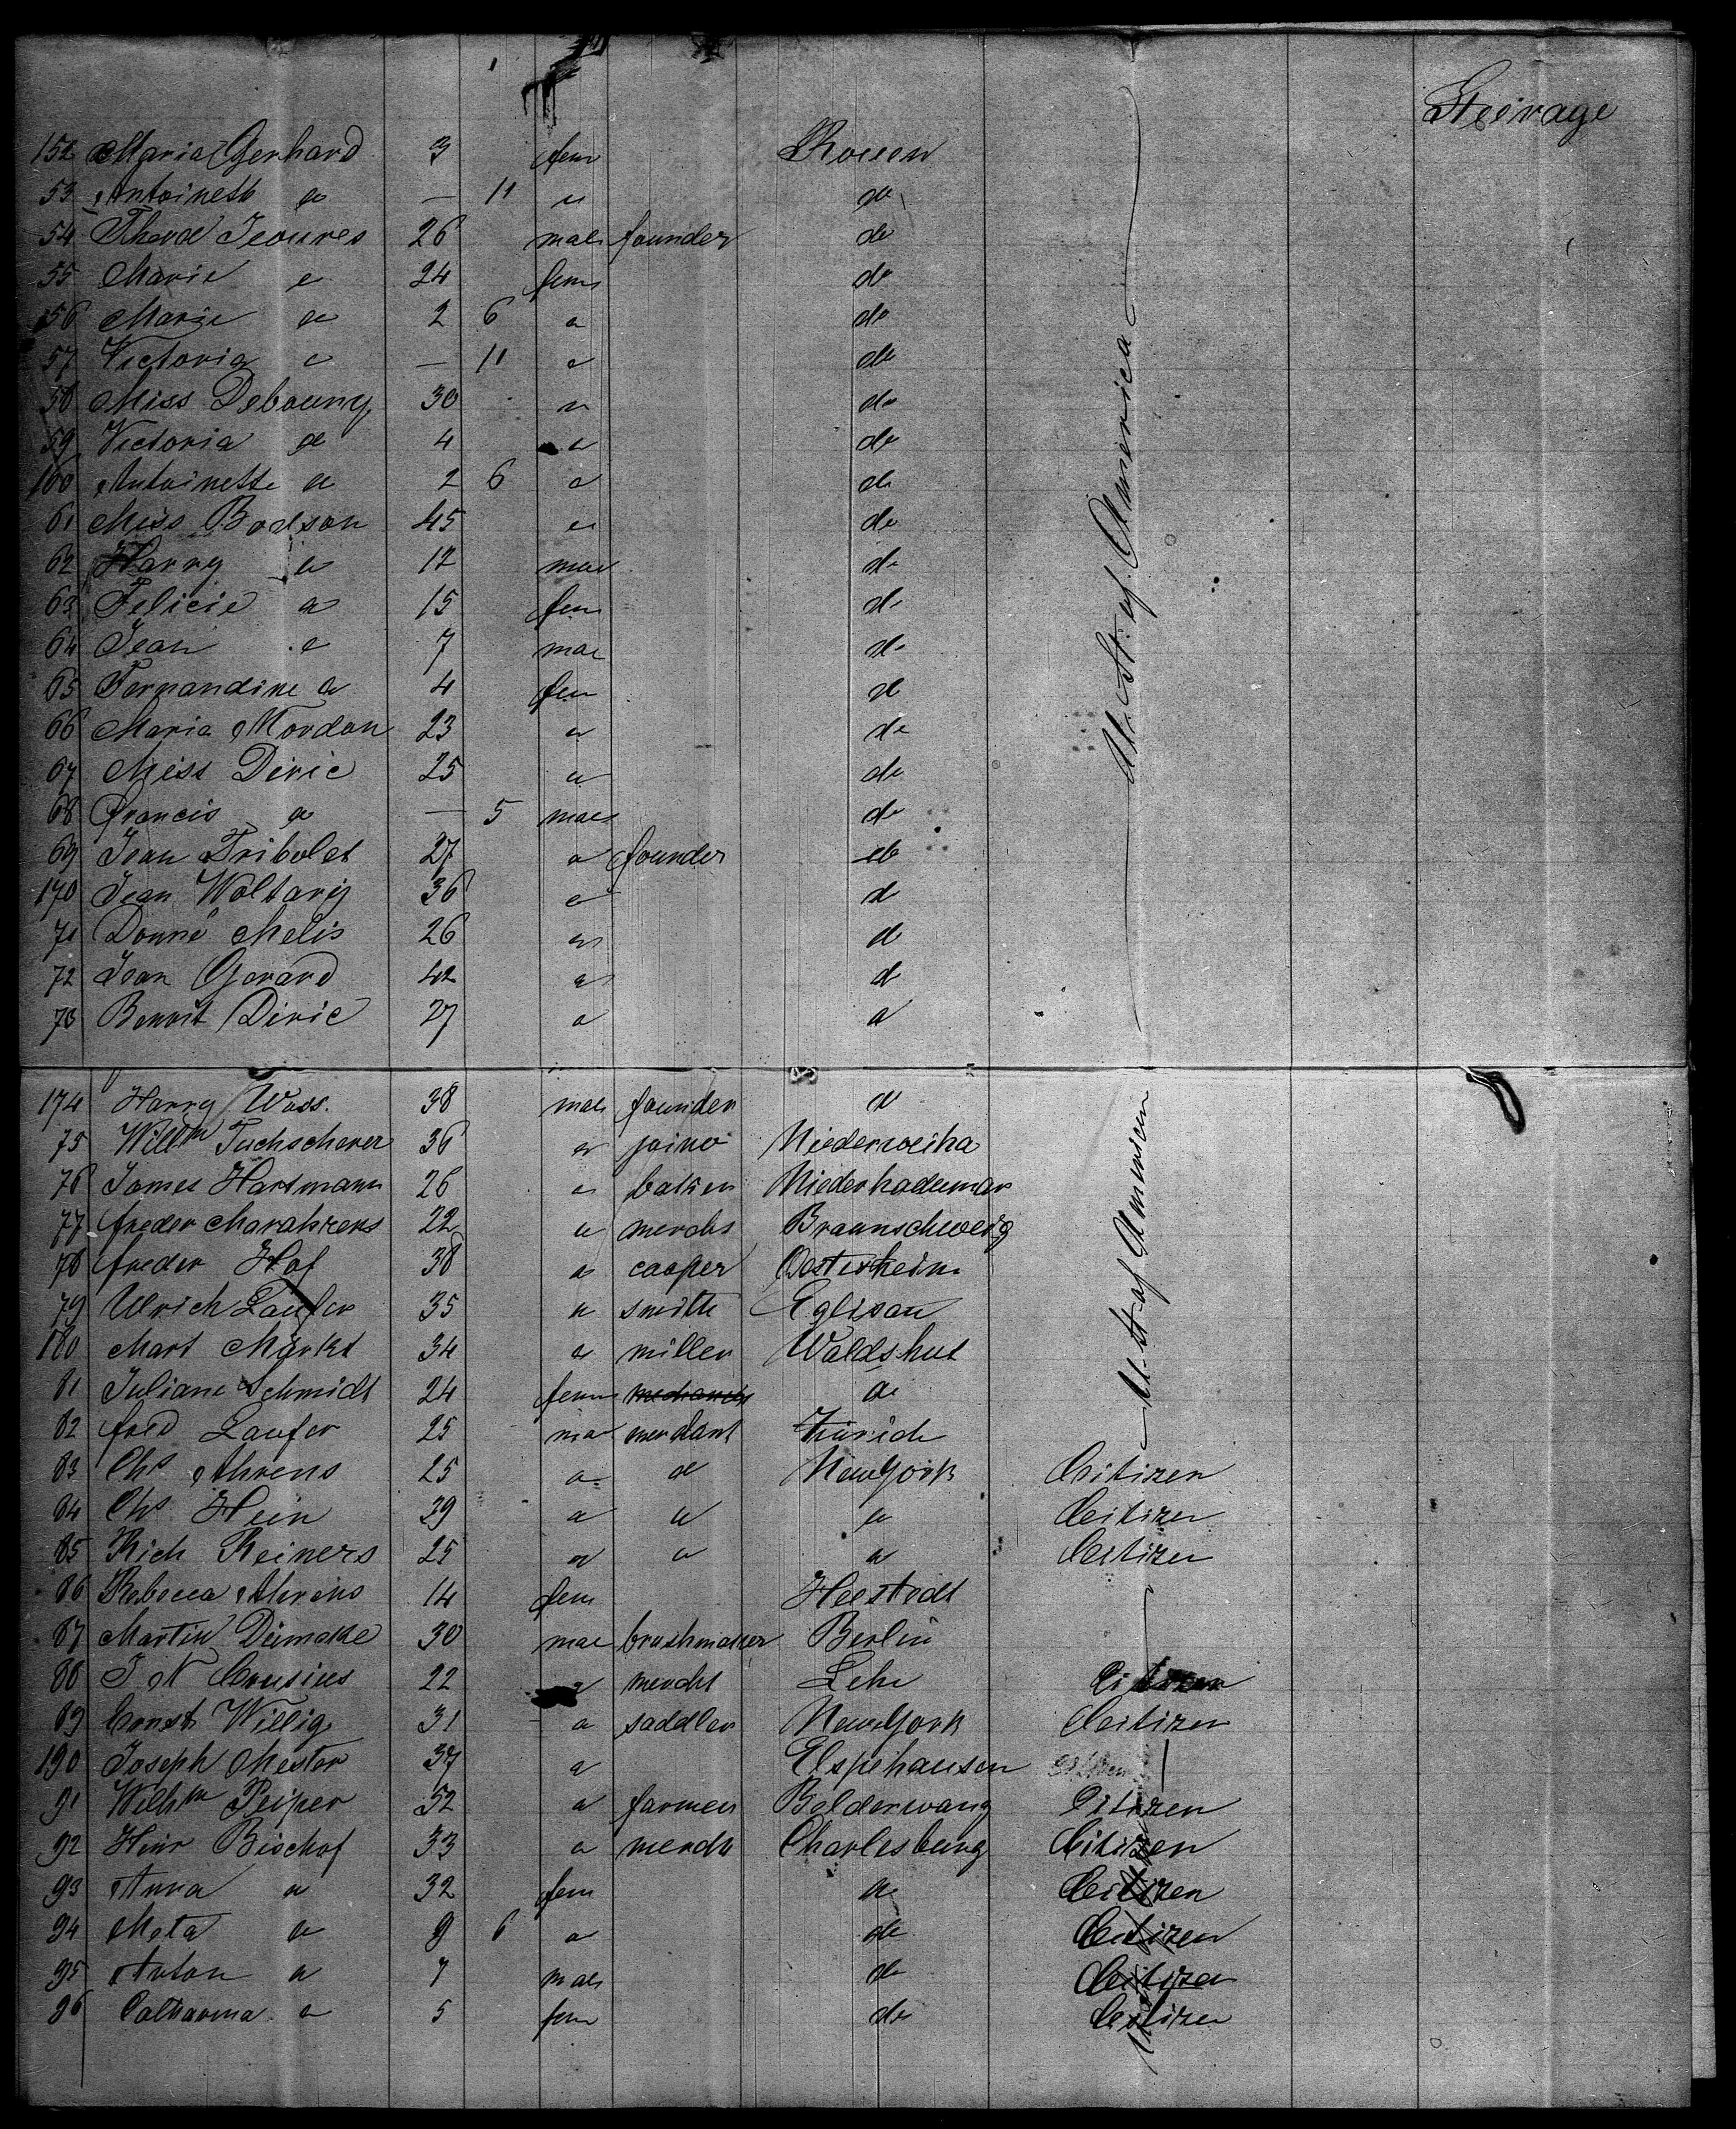 Steerage
152 Maria Gerhard 3 fem Rouen
53 Antoinett do — 11 " do
54 Theod Jeoures 26 male founder do
55 Marie " 24 fem do
56 Marie do 2 6 " do
57 Victoria " — 11 " do
58 Miss Debouny 30 " do
59 Victoria do 4 " do
160 Antoinette do 2 6 " do
61 Miss Bodson 45 " do
62 Harry do 12 mae do
63 Felicie do 15 fem do
64 Jean " 7 mae do
65 Fernandine do 4 fem do
66 Maria Mordan 23 " do
67 Miss Diric 25 " do
68 Francis do — 5 male do
69 Jean Tribolet 27 " founder do
170 Jean Woltarij 36 " do
71 Donné Melis 26 " do
72 Jean Gerard 42 " do
73 Benoit Diric 27 " "
Un. St. of America
174 Harry Wass. 38 male founder "
75 Willm Tuchscherer 36 " joino Niederweiha
76 James Hartmann 26 " baker Niederhadamar
77 freder Marahrens 22 " mercht Braunschweig
78 freder Hof 38 " cooper Oosterheim
79 Ulrich Laufer 35 " smith Eglisau
180 Mart Märkt 34 " miller Waldshut
81 Juliane Schmidt 24 fem do
82 fred Laufer 25 ma merchant Zürich
83 Chs Ahrens 25 " " New York Citizen
84 Chs Hein 29 " " " Citizen
85 Rich Reiners 25 " " " Citizen
86 Rebecca Ahrens 14 fem Heestedt
87 Martin Dümcke 30 mae brushmaker Berlin
88 J N Crusius 22 " mercht Lehe Citizen
89 Const Willig 31 " saddler New York Citizen
190 Joseph Mester 37 " Elspehausen
91 Wilhm Peiper 52 " farmer Bolderwang Citizen
92 Hinr Bischof 33 " mercht Charlesburg Citizen
93 Anna " 32 fem " Citizen
94 Meta " 9 6 " do Citizen
95 Anton " 7 male do Citizen
96 Catharina " 5 fem do Citizen
Un. St. of America